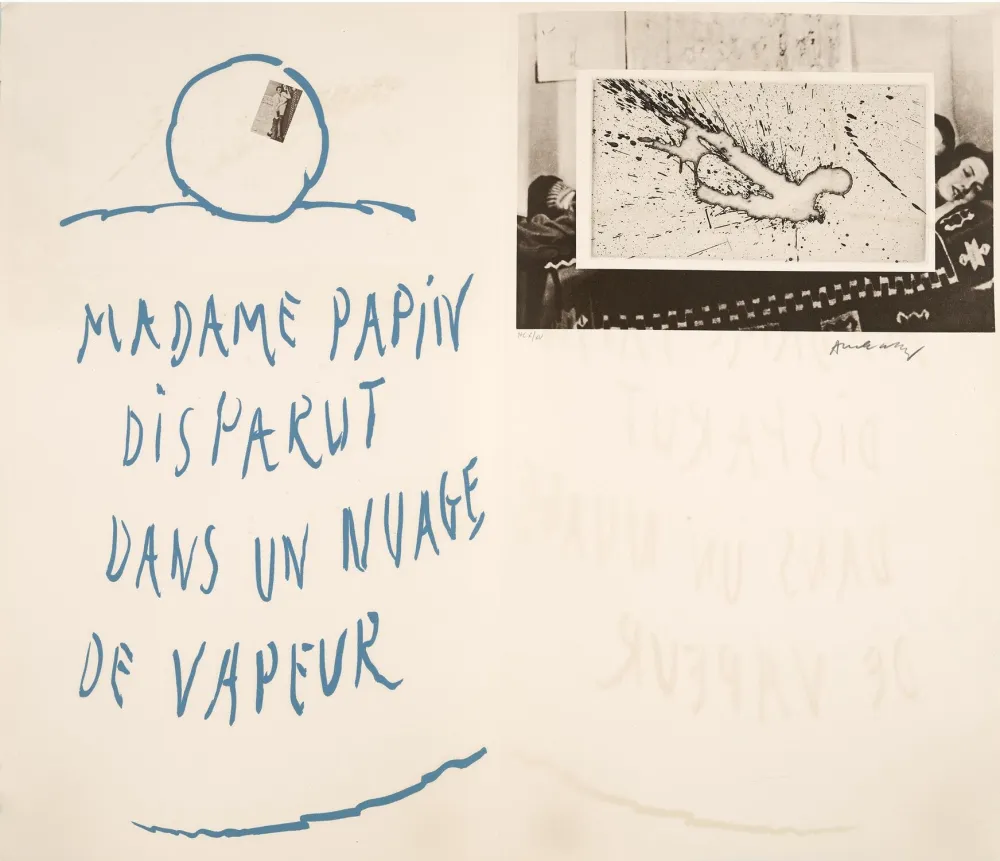 MADAME PAPIN
DISPARUT
DANS UN NUAGE
DE VAPEUR